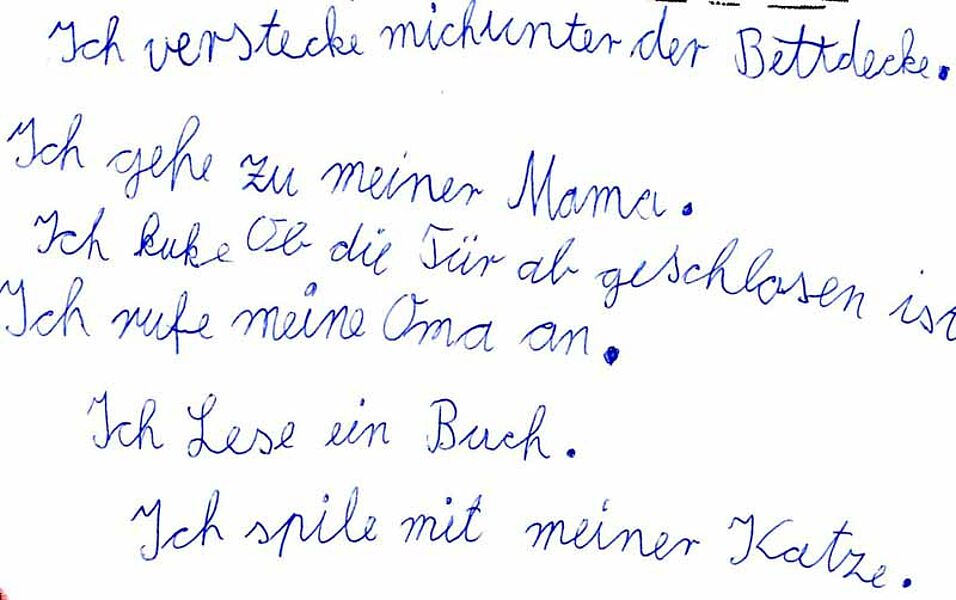 Ich verstecke mich unter der Bettdecke.
Ich gehe zu meiner Mama.
Ich kuke Ob die Tür ab geschlosen ist
Ich rufe meine Oma an.
Ich Lese ein Buch.
Ich spile mit meiner Katze.